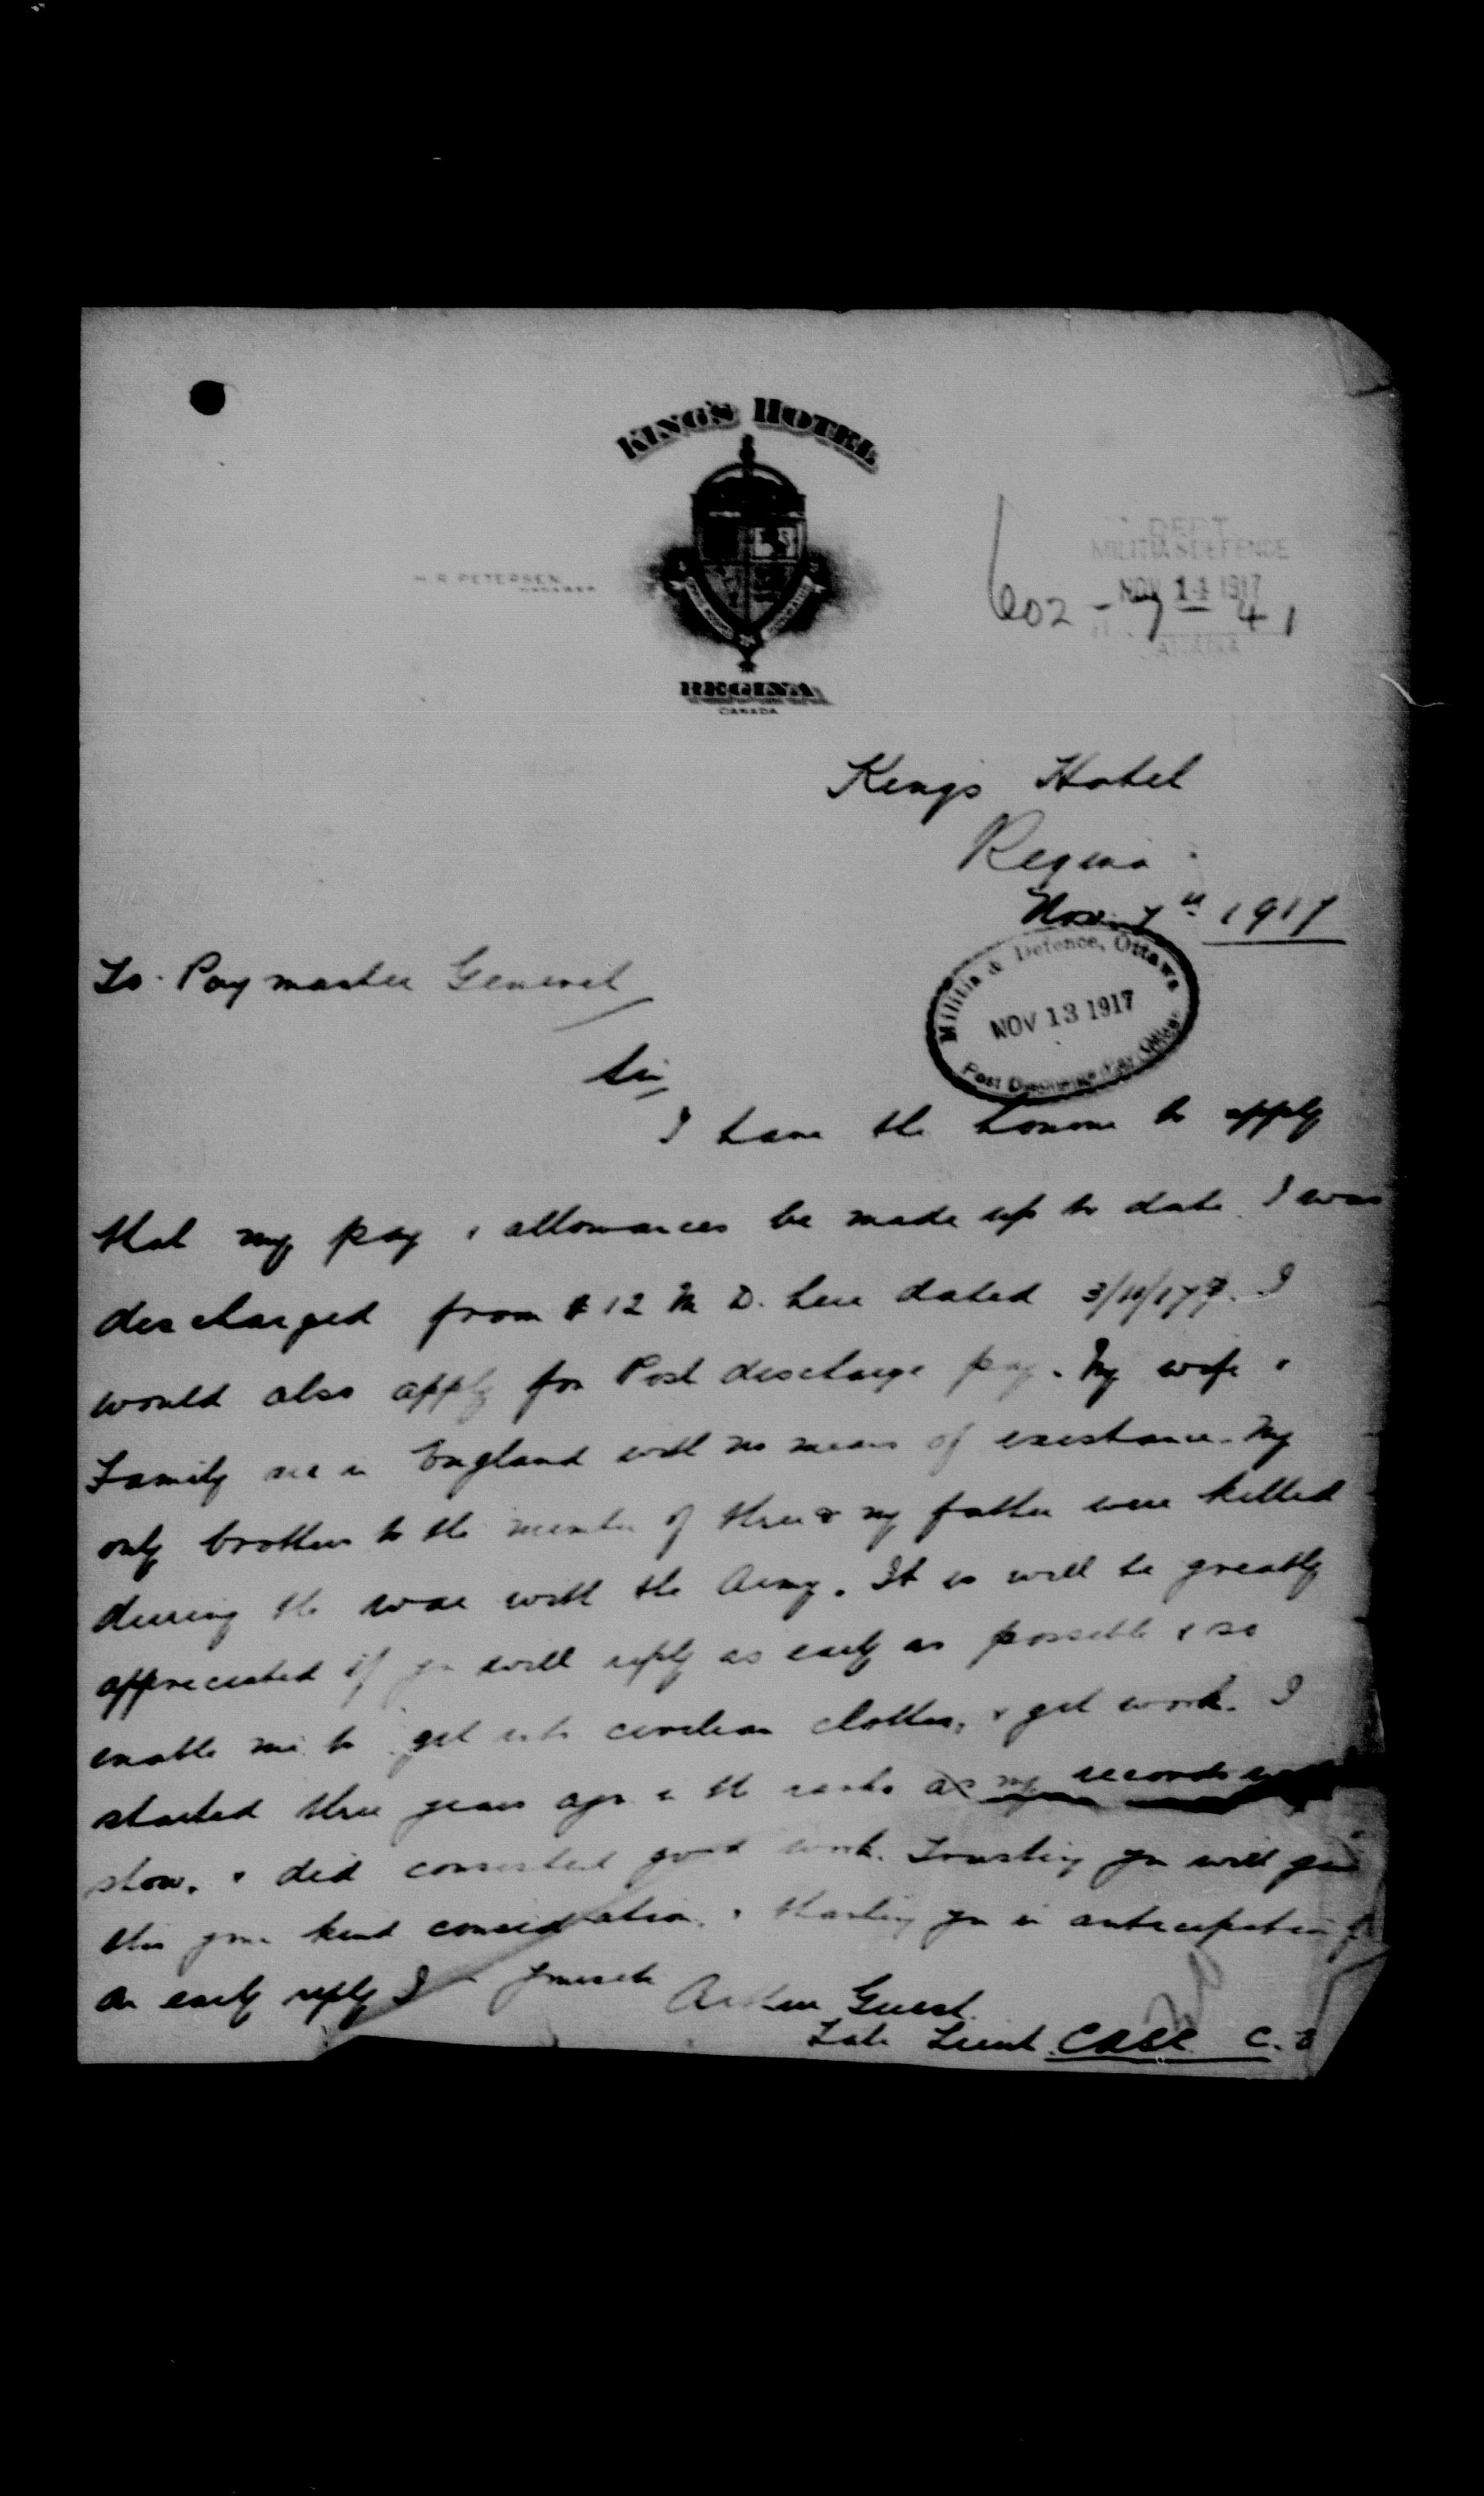 KING'S HOTEL
H. R. PETERSEN
MANAGER
DEPT
MILITIA & DEFENCE
NOV 14 1917
602 - 7 - 41
REGINA
CANADA
Kings Hotel
Regina
Nov. 7th 1917
To. Paymaster General
Militia & Defence, Ottawa
NOV 13 1917
Post Discharge Pay Office
Sir,
I have the honour to apply
that my pay & allowances be made up to date. I was
discharged from # 12 M D. here dated
I
would also apply for Post discharge pay. My wife &
Family are in England with no means of existance. My
only brothers to the number of three & my father were killed
during the war with the Army. It is will be greatly
appreciated if you will reply as early as possible & so
enable me to get into civilian clothes, & get work. I
started three years ago in the ranks as my records will
show. & did consistent good work. Trusting you will give
this your kind consideration. & thanking you in anticipation of
an early reply I
Arthur Guest.
Late Lieut. CASC C.